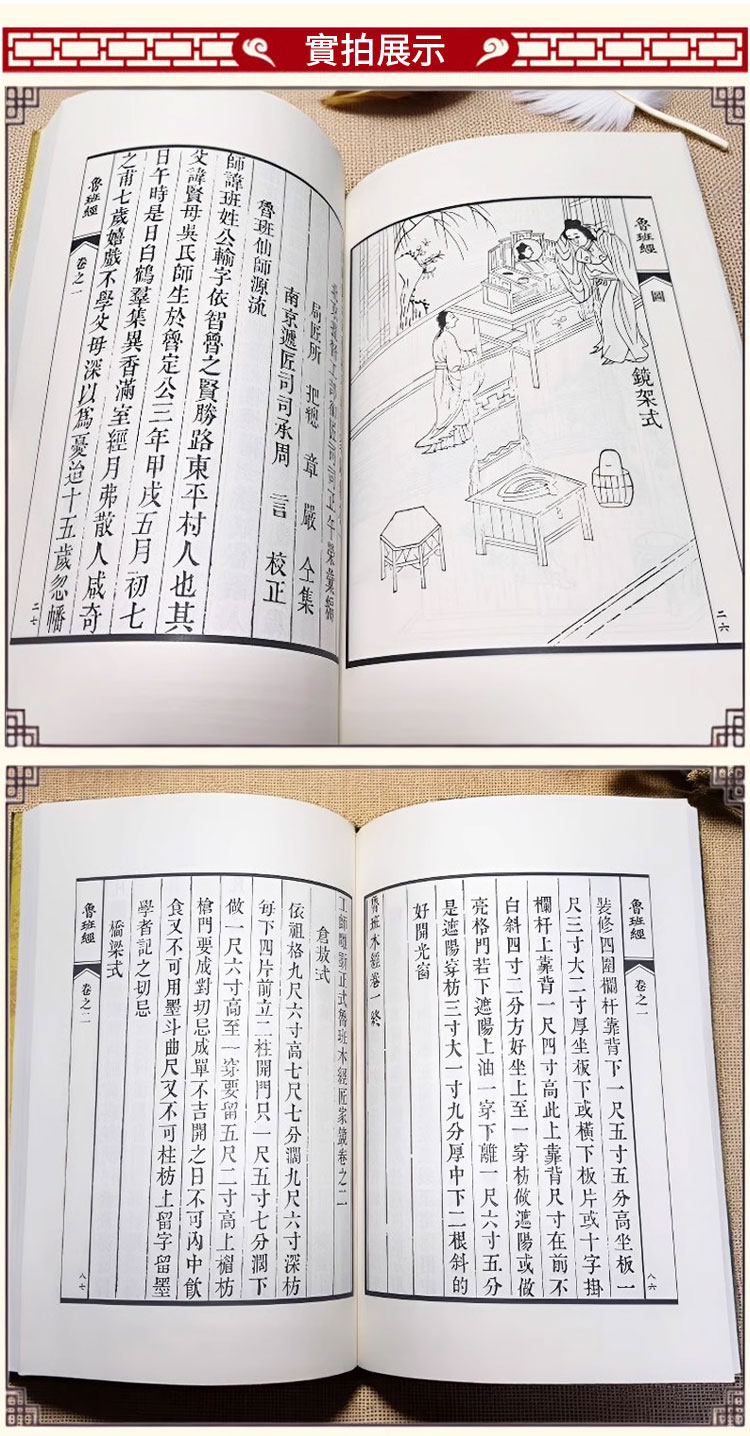 實拍展示
魯班經
圖
鏡架式
二六
御匠司司正午榮彙編
局匠所 把總 章嚴 仝集
南京遞匠司司承周 言 校正
魯班仙師源流
師諱班姓公輸字依智魯之賢勝路東平村人也其
父諱賢母吳氏師生於魯定公三年甲戌五月初七
日午時是日白鶴羣集異香滿室經月弗散人咸奇
之甫七歲嬉戲不學父母深以爲憂迨十五歲忽幡
魯班經
卷之一
二七
魯班經
卷之二
八六
裝修四圍欄杆靠背下一尺五寸五分高坐板一
尺三寸大二寸厚坐板下或橫下板片或十字掛
欄杆上靠背一尺四寸高此上靠背尺寸在前不
白斜四寸二分方好坐上至一穿枋做遮陽或做
亮格門若下遮陽上油一穿下離一尺六寸五分
是遮陽穿枋三寸大一寸九分厚中下二根斜的
好開光窗
魯班木經卷一終
工師雕斲正式魯班木經匠家鏡卷之二
倉敖式
依祖格九尺六寸高七尺七分濶九尺六寸深枋
每下四片前立二柱開門只一尺五寸七分濶下
做一尺六寸高至一穿要留五尺二寸高上楣枋
槍門要成對切忌成單不吉開之日不可內中飲
食又不可用墨斗曲尺又不可柱枋上留字留墨
學者記之切忌
橋梁式
魯班經
卷之二
八七